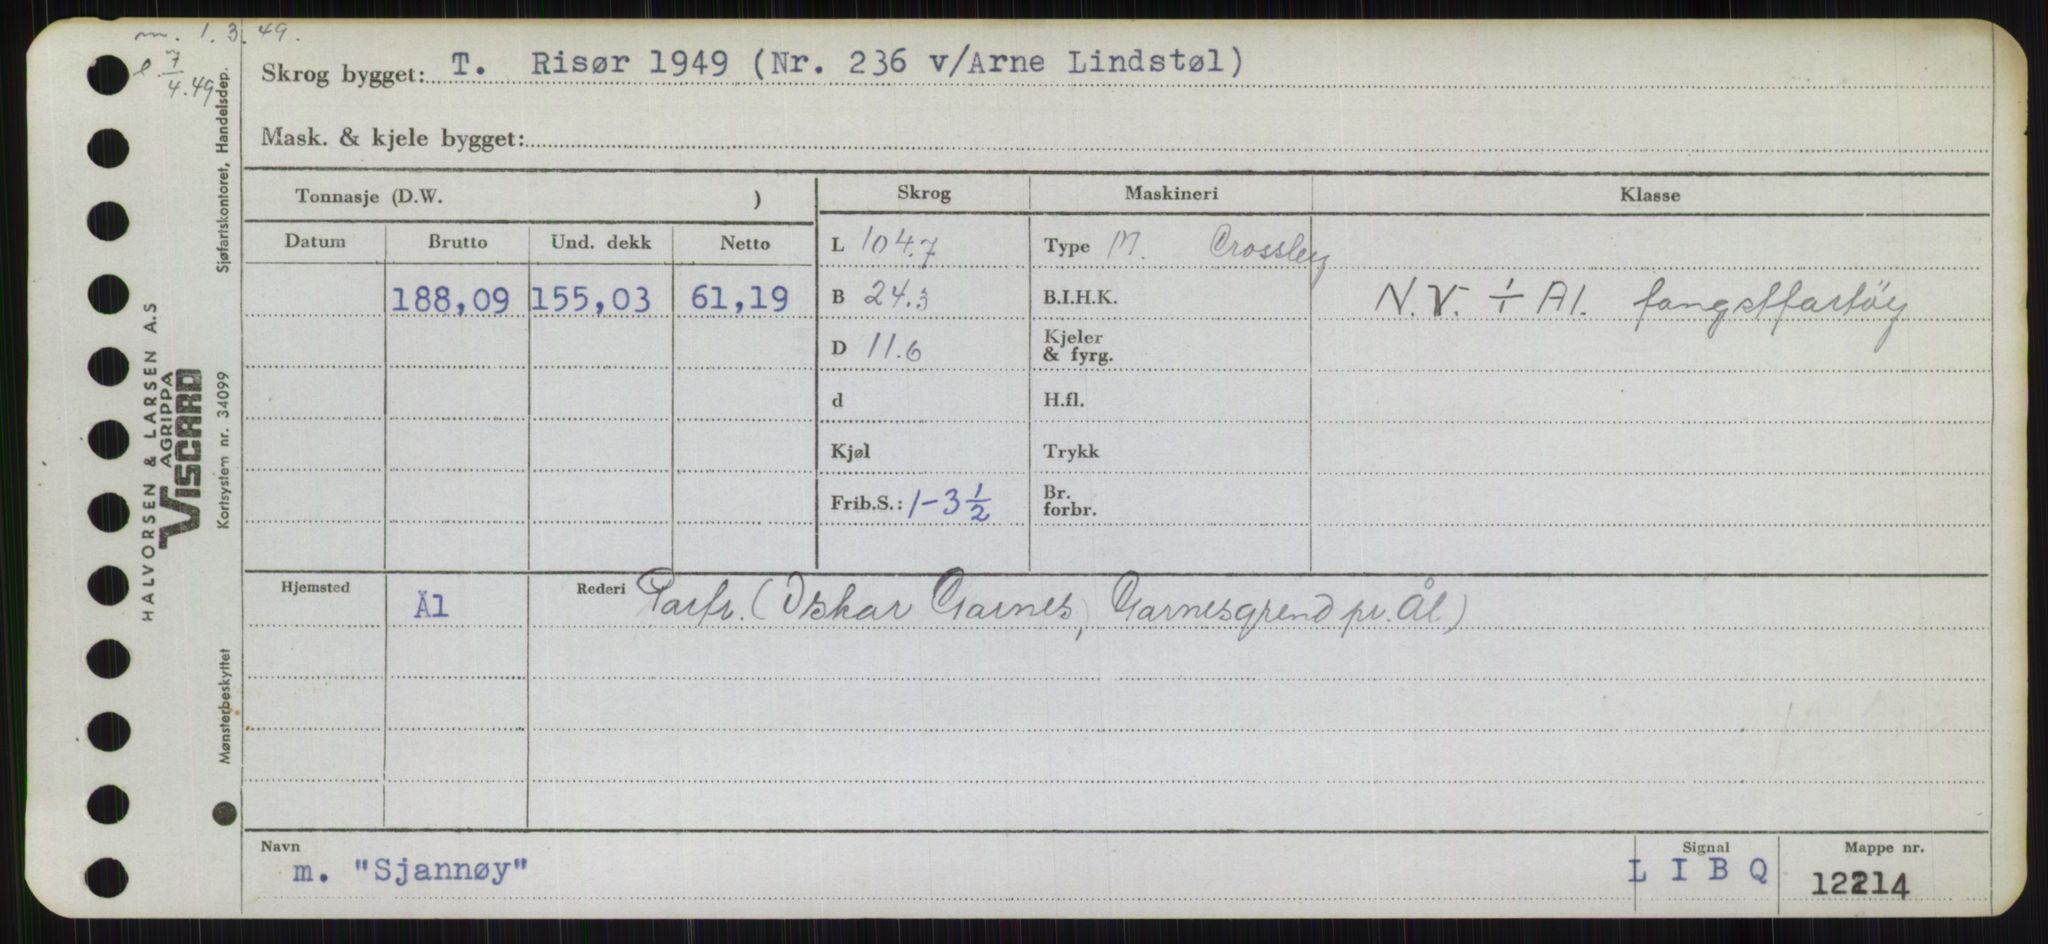 m. 1.3.49.
l. 7/4.49
Skrog bygget: T. Risør 1949 (Nr. 236 v/Arne Lindstøl)
Mask. & kjele bygget:
Tonnasje (D.W. )
Skrog
Maskineri
Klasse
Datum
Brutto
Und. dekk
Netto
188,09
155,03
61,19
L 104.7
B 24.3
D 11.6
d
Kjøl
Frib.S.: 1-3 1/2
Type M. Crossley
B.I.H.K.
Kjeler
& fyrg.
H.fl.
Trykk
Br.
forbr.
N.V. 1/1 A1. fangstfartøy
Hjemsted
Ål
Rederi Partr. (Oskar Garnes, Garnesgrend pr. Ål.)
Navn
m. "Sjannøy"
Signal
L I B Q
Mappe nr.
12214
HALVORSEN & LARSEN A.S
AGRIPPA
VISCARD
Sjøfartskontoret, Handelsdep.
Kortsystem nr. 34099
Mønsterbeskyttet